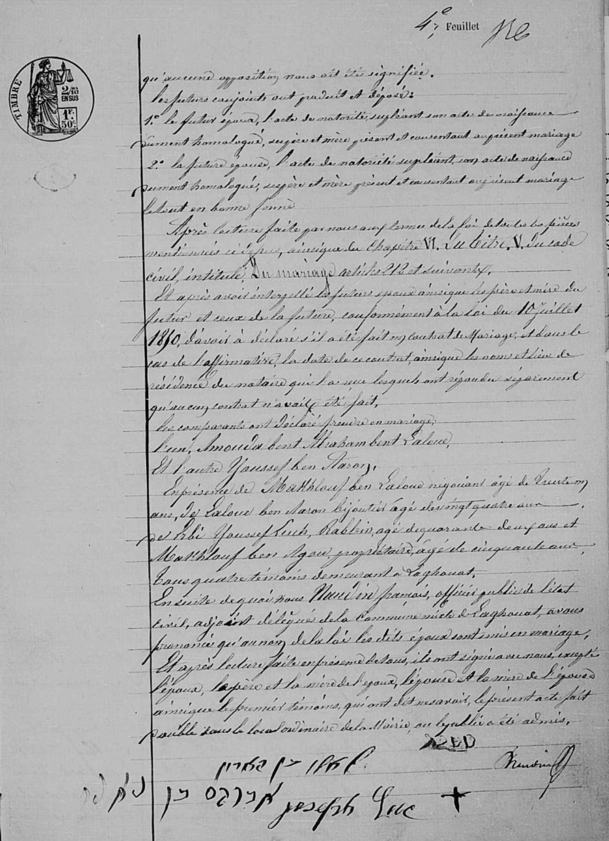 4e, Feuillet
TIMBRE
2/10es
EN SUS
1F.
50c
qu'aucune opposition nous ait été signifiée.
Les futurs conjoints ont produit et déposé:
1o. le futur époux, l'acte de notorité, supléant son acte de naissance
dument homologué, ses père et mère présent et consentant au présent mariage
2o. la future épouse, l'acte de notoriété supléant son acte de naissance
dument homologués, ses père et mère présent et consentant au présent mariage
le tout en bonne forme
Après lecture faite par nous aux termes de la loi de toutes les pièces
mentionnées ci-dessus, ainsi que du Chapitre VI. du titre. V. du code
civil, intitulé, Du mariage articles 212 et suivants.
Et après avoir interpellé les futurs époux ainsi que les père et mère du
futur et ceux de la future, conformément à la loi du 10 juillet
1850, d'avoir à déclaré s'il a été fait un contrat de Mariage, et dans le
cas de l'affirmative, la date de ce contrat, ainsi que les nom et lieu de
résidence du notaire qui l'a reçu lesquels ont répondu séparément
qu'aucun contrat n'avait été fait.
Les comparants ont déclaré prendre en mariage;
l'un, Amouda bent Abraham bent Laloue,
Et l'autre Youssef ben Aaron,
En présence de Makhlouf ben Laloue négociant âgé de trente un
ans, De Laloue ben Aaron bijoutier âgé de vingt quatre ans
de Rbi Youssef Luch, Rabbin, agé de quarante deux ans et
Makhlouf ben Agou, propriétaire, âgé de cinquante ans
tous quatre témoins demeurant à Laghouat.
En suite de quoi nous français, officier public de l'état
civil, adjoint délégué de la commune mixte de Laghouat, avons
prononcé qu'au nom de la loi les dits époux sont unis en mariage,
Et après lecture faite en présence de tous, ils ont signé avec nous, excepté
l'époux, la père et la mère de l'époux, l'épouse et la mère de l'épouse
ainsi que le premier témoins, qui ont dit ne savoir, le présent acte fait
double dans le local ordinaire de la Mairie, ou le public a été admis.
Joseph Luc +